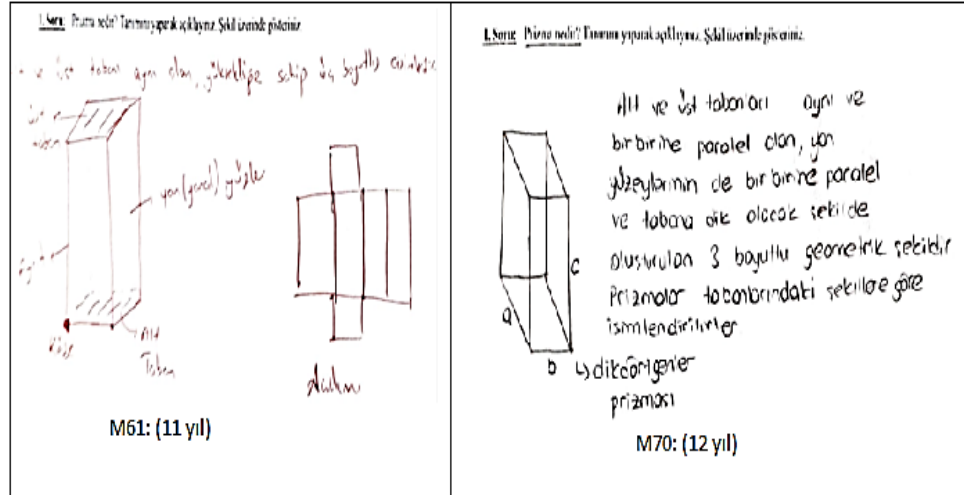 1. Soru: Prizma nedir? Tanımını yaparak açıklayınız. Şekil üzerinde gösteriniz.
ve üst taban aynı olan, yüksekliğe sahip üç boyutlu
üst
taban
yan (yanal) yüzler
Alt
Taban
Açılım
M61: (11 yıl)
1. Soru: Prizma nedir? Tanımını yaparak açıklayınız. Şekil üzerinde gösteriniz.
Alt ve üst tabanları aynı ve
birbirine paralel olan, yan
yüzeylerinin de birbirine paralel
ve tabana dik olacak şekilde
oluşturulan 3 boyutlu geometrik şekildir
Prizmalar tabanlarındaki şekillere göre
isimlendirilirler
a
b
c
↳ dikdörtgenler
prizması
M70: (12 yıl)